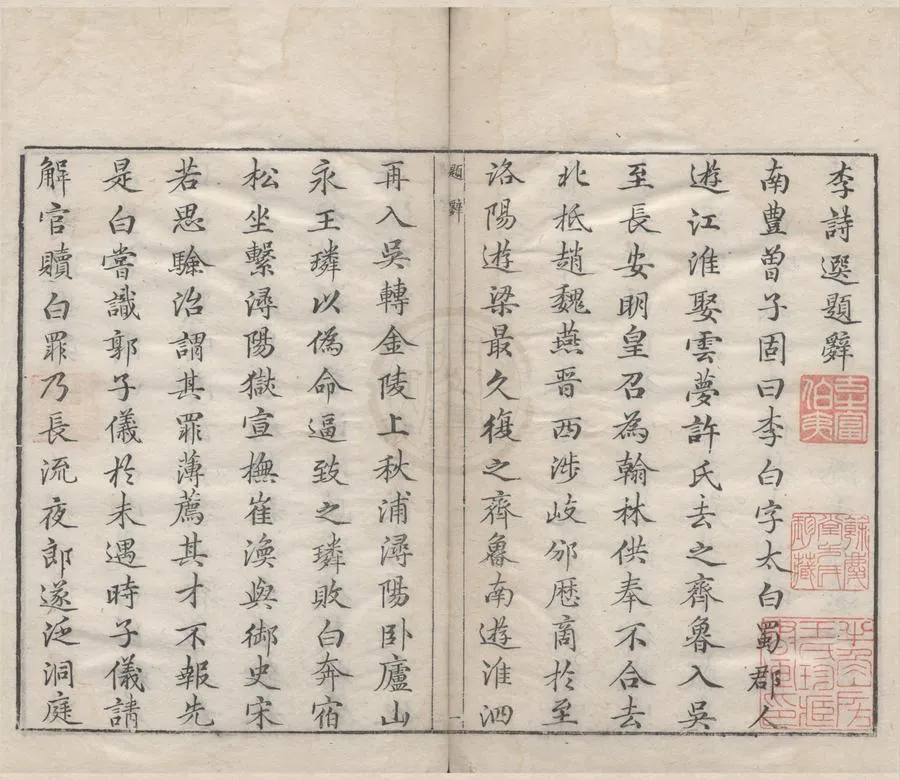 李詩選題辭
南豊曾子固曰李白字太白蜀郡人
遊江淮娶雲夢許氏去之齊魯入吳
至長安明皇召為翰林供奉不合去
北抵趙魏燕晉西涉岐邠歷商於至
洛陽遊梁最久復之齊魯南遊淮泗
題辭
一
再入吳轉金陵上秋浦潯陽卧廬山
永王璘以偽命逼致之璘敗白奔宿
松坐繫潯陽獄宣撫崔渙與御史宋
若思驗治謂其罪薄薦其才不報先
是白嘗識郭子儀於未遇時子儀請
解官贖白罪乃長流夜郎遂泛洞庭